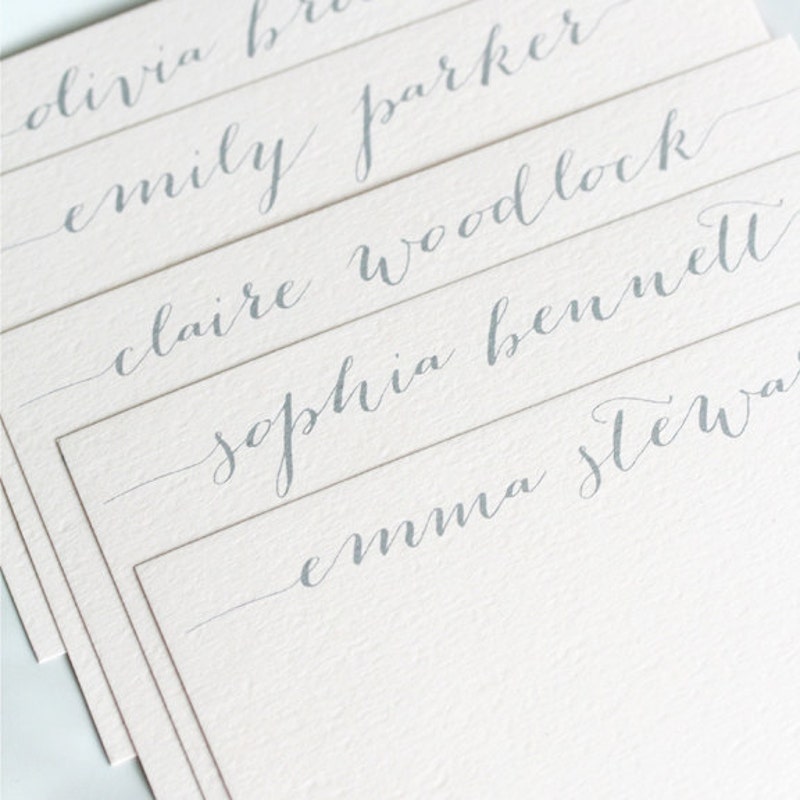 olivia
emily parker
claire woodlock
sophia bennett
emma